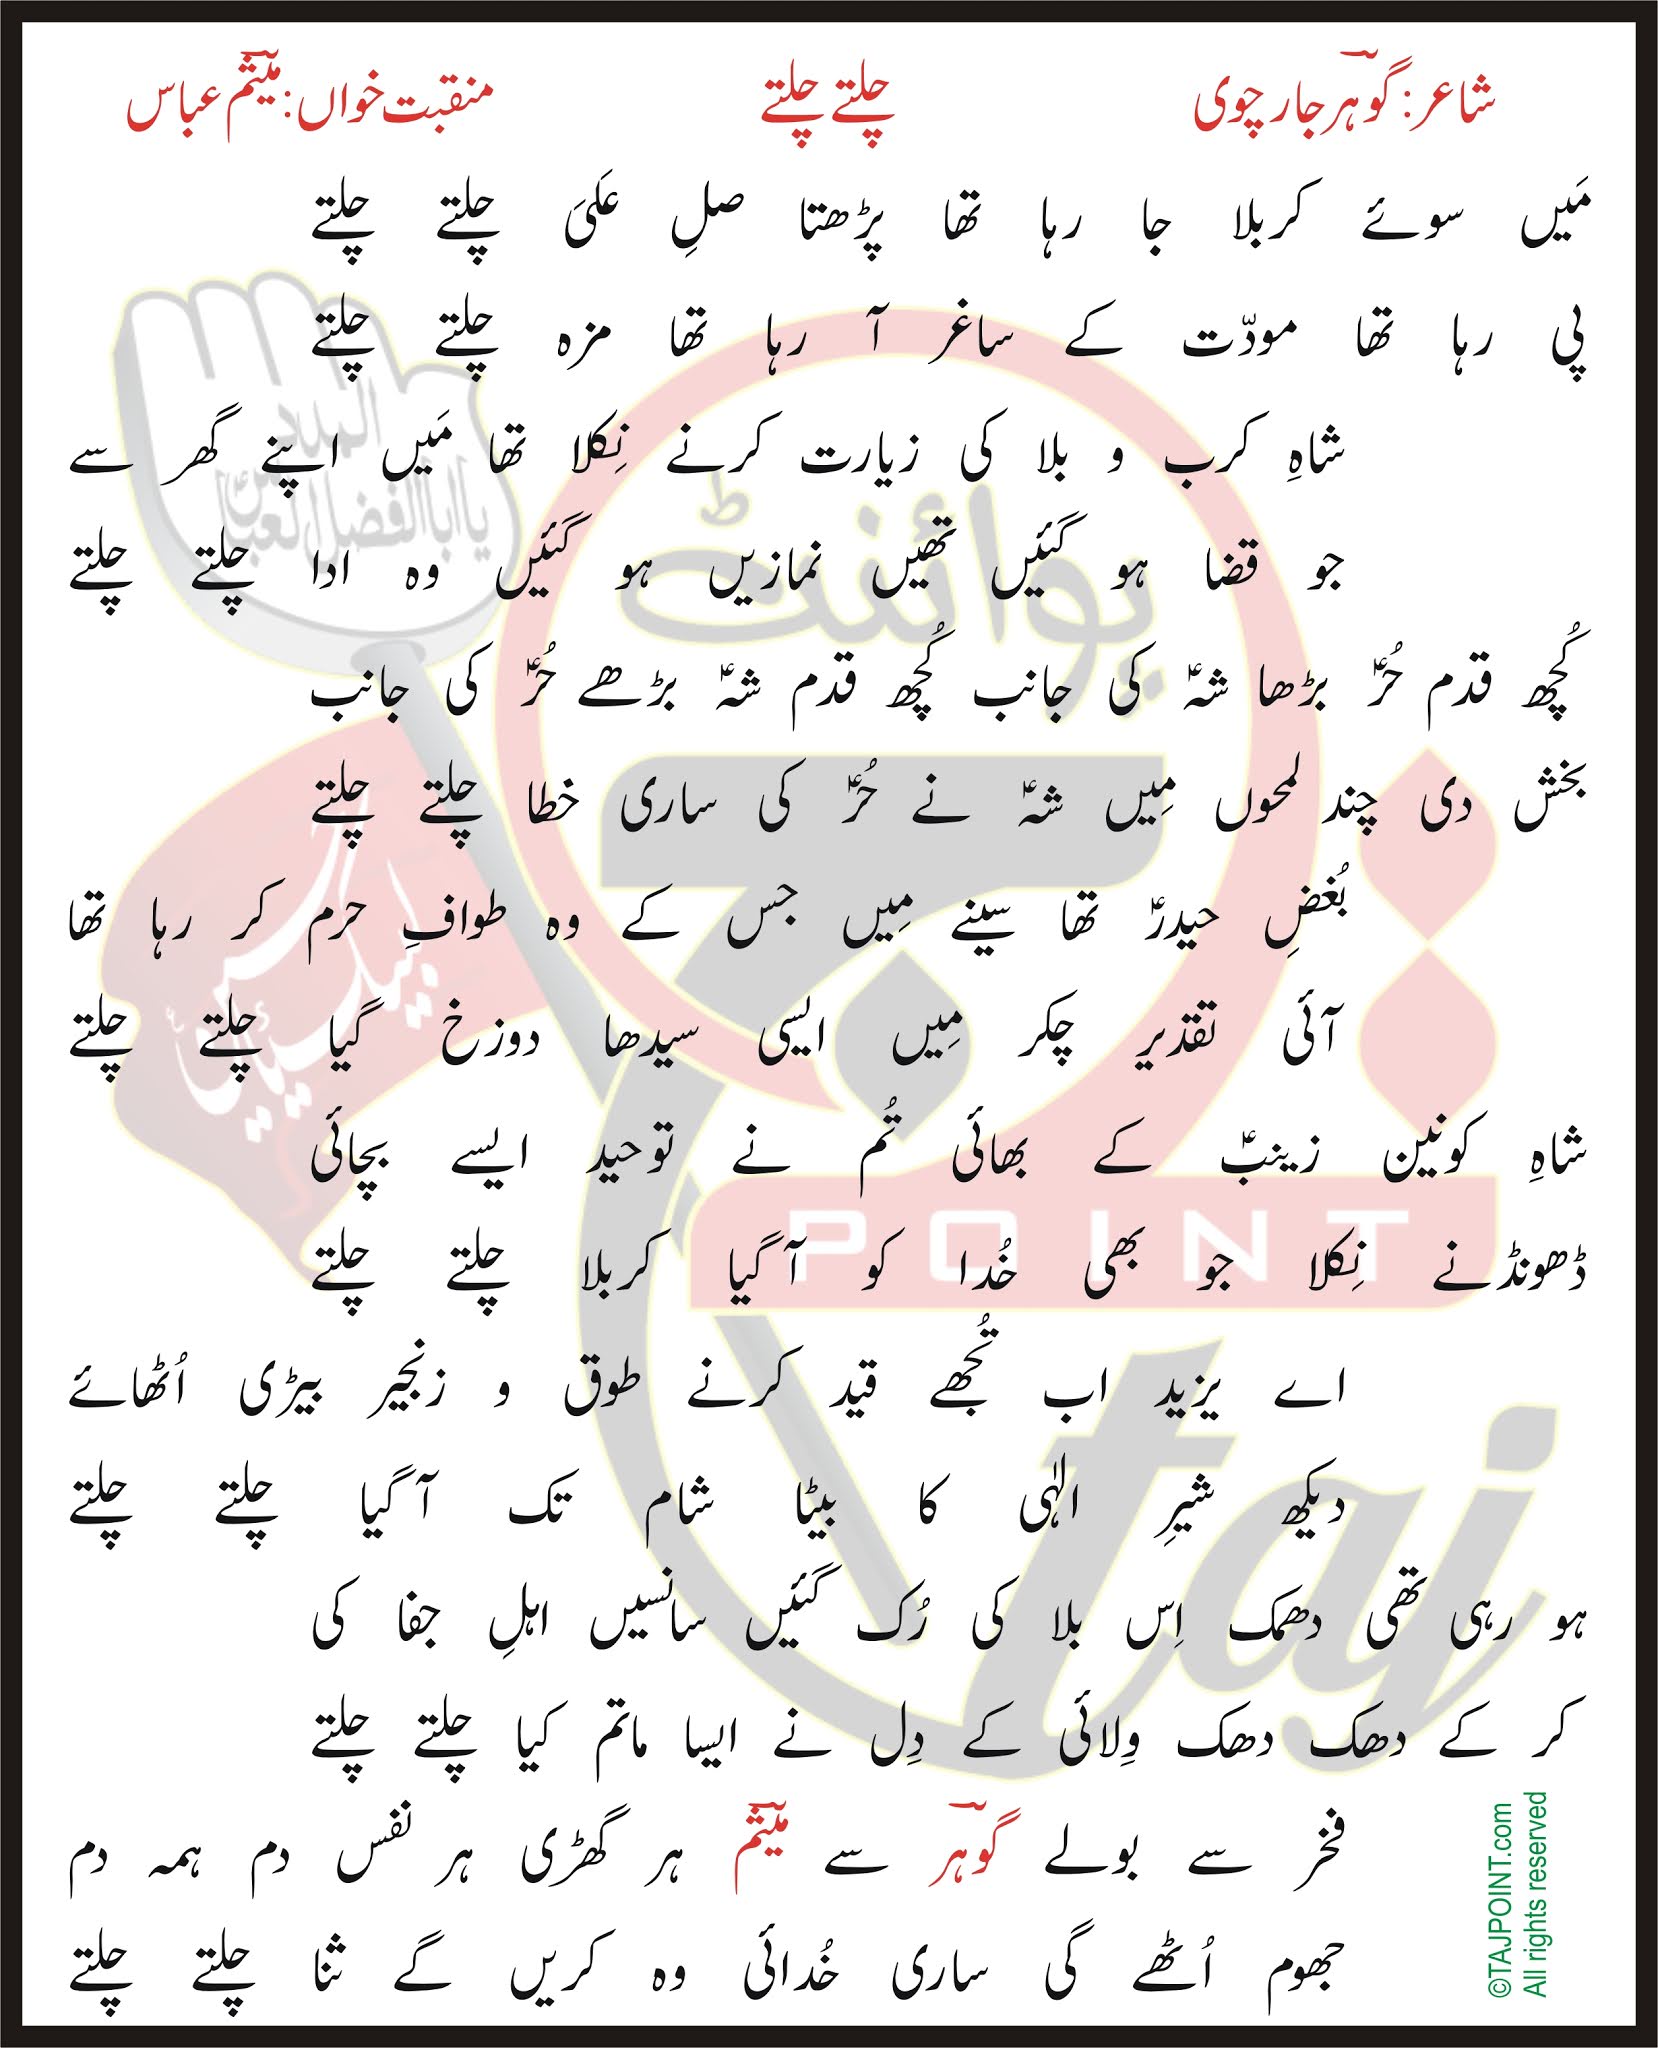 شاعر: گوہر جارچوی
چلتے چلتے
منقبت خواں: میثم عباس
مَیں سوئے کربلا جا رہا تھا پڑھتا صلِ عَلیَ چلتے چلتے
پی رہا تھا مودّت کے ساغر آ رہا تھا مزہ چلتے چلتے
شاہِ کرب و بلا کی زیارت کرنے نِکلا تھا مَیں اپنے گھر سے
جو قضا ہو گئیں تھیں نمازیں ہو گئیں وہ ادا چلتے چلتے
کُچھ قدم حُرؑ بڑھا شہؑ کی جانب کُچھ قدم شہؑ بڑھے حُرؑ کی جانب
بخش دی چند لمحوں مِیں شہؑ نے حُرؑ کی ساری خطا چلتے چلتے
بُغضِ حیدرؑ تھا سینے مِیں جس کے وہ طوافِ حرم کر رہا تھا
آئی تقدیر چکر مِیں ایسی سیدھا دوزخ گیا چلتے چلتے
شاہِ کونین زینبؑ کے بھائی تُم نے توحید ایسے بچائی
ڈھونڈنے نِکلا جو بھی خُدا کو آ گیا کربلا چلتے چلتے
اے یزید اب تُجھے قید کرنے طوق و زنجیر بیڑی اُٹھائے
دیکھ شیرِ الٰہی کا بیٹا شام تک آ گیا چلتے چلتے
ہو رہی تھی دھمک اِس بلا کی رُک گئیں سانسیں اہلِ جفا کی
کر کے دھک دھک وِلائی کے دِل نے ایسا ماتم کیا چلتے چلتے
فخر سے بولے گوہر سے میثم ہر گھڑی ہر نفس دم ہمہ دم
جھوم اُٹھے گی ساری خُدائی وہ کریں گے ثنا چلتے چلتے
©TAJPOINT.com
All rights reserved
پوائنٹ
POINT
taj
یا ابا الفضل العباسؑ
لبیک یا حسینؑ